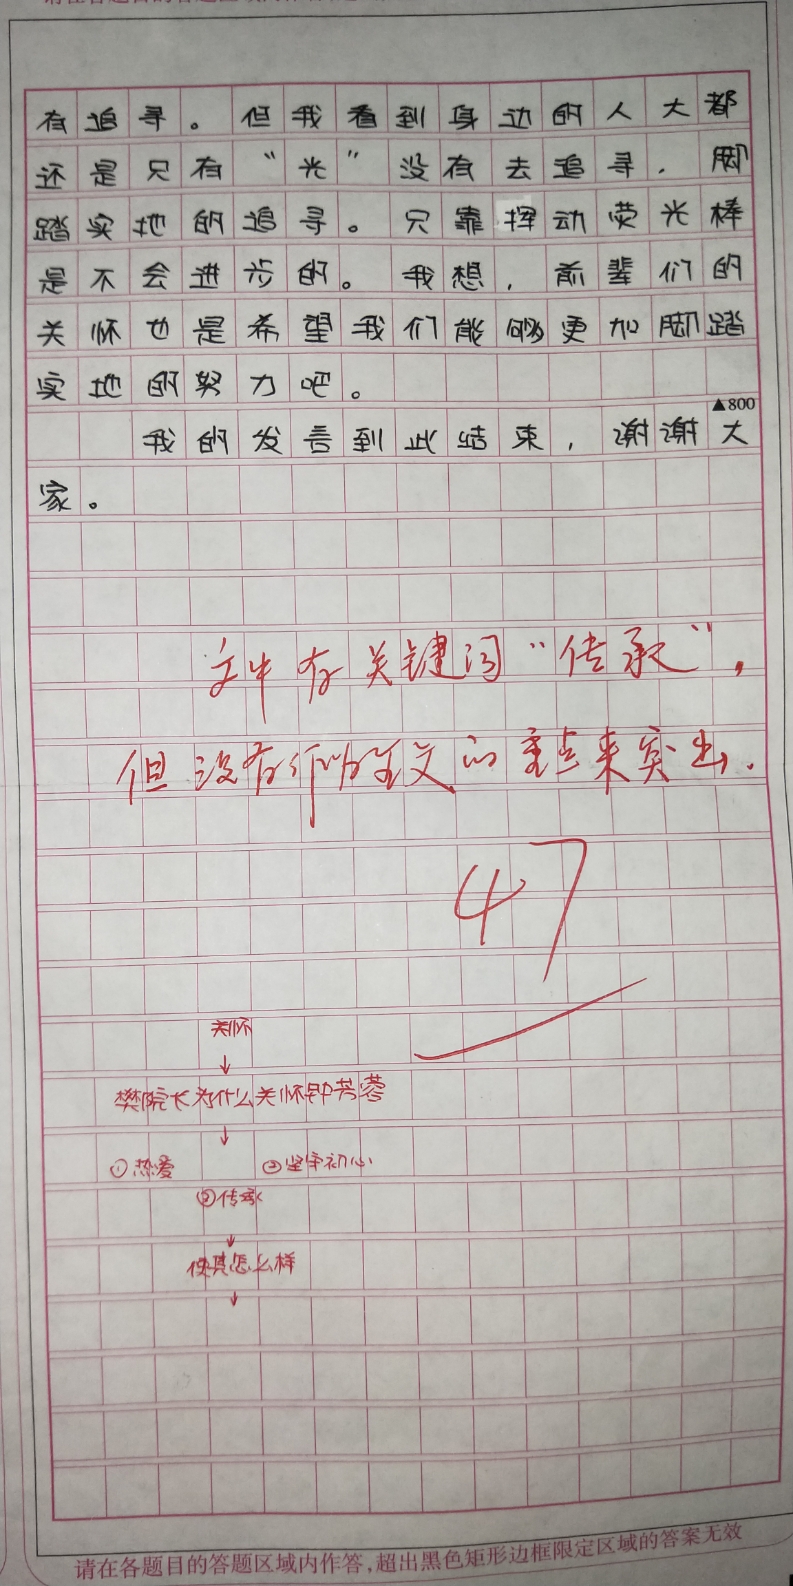 有追寻。但我看到身边的人大都
还是只有“光”没有去追寻,脚
踏实地的追寻。只靠挥动荧光棒
是不会进步的。我想,前辈们的
关怀也是希望我们能够更加脚踏
实地的努力吧。
▲800
我的发言到此结束,谢谢大
家。
文中有关键词“传承”,
但没有作为全文的重点来突出.
47
关怀
↓
樊院长为什么关怀钟芳蓉
↓
①热爱 ②坚守初心
③传承
↓
使其怎么样
↓
请在各题目的答题区域内作答,超出黑色矩形边框限定区域的答案无效